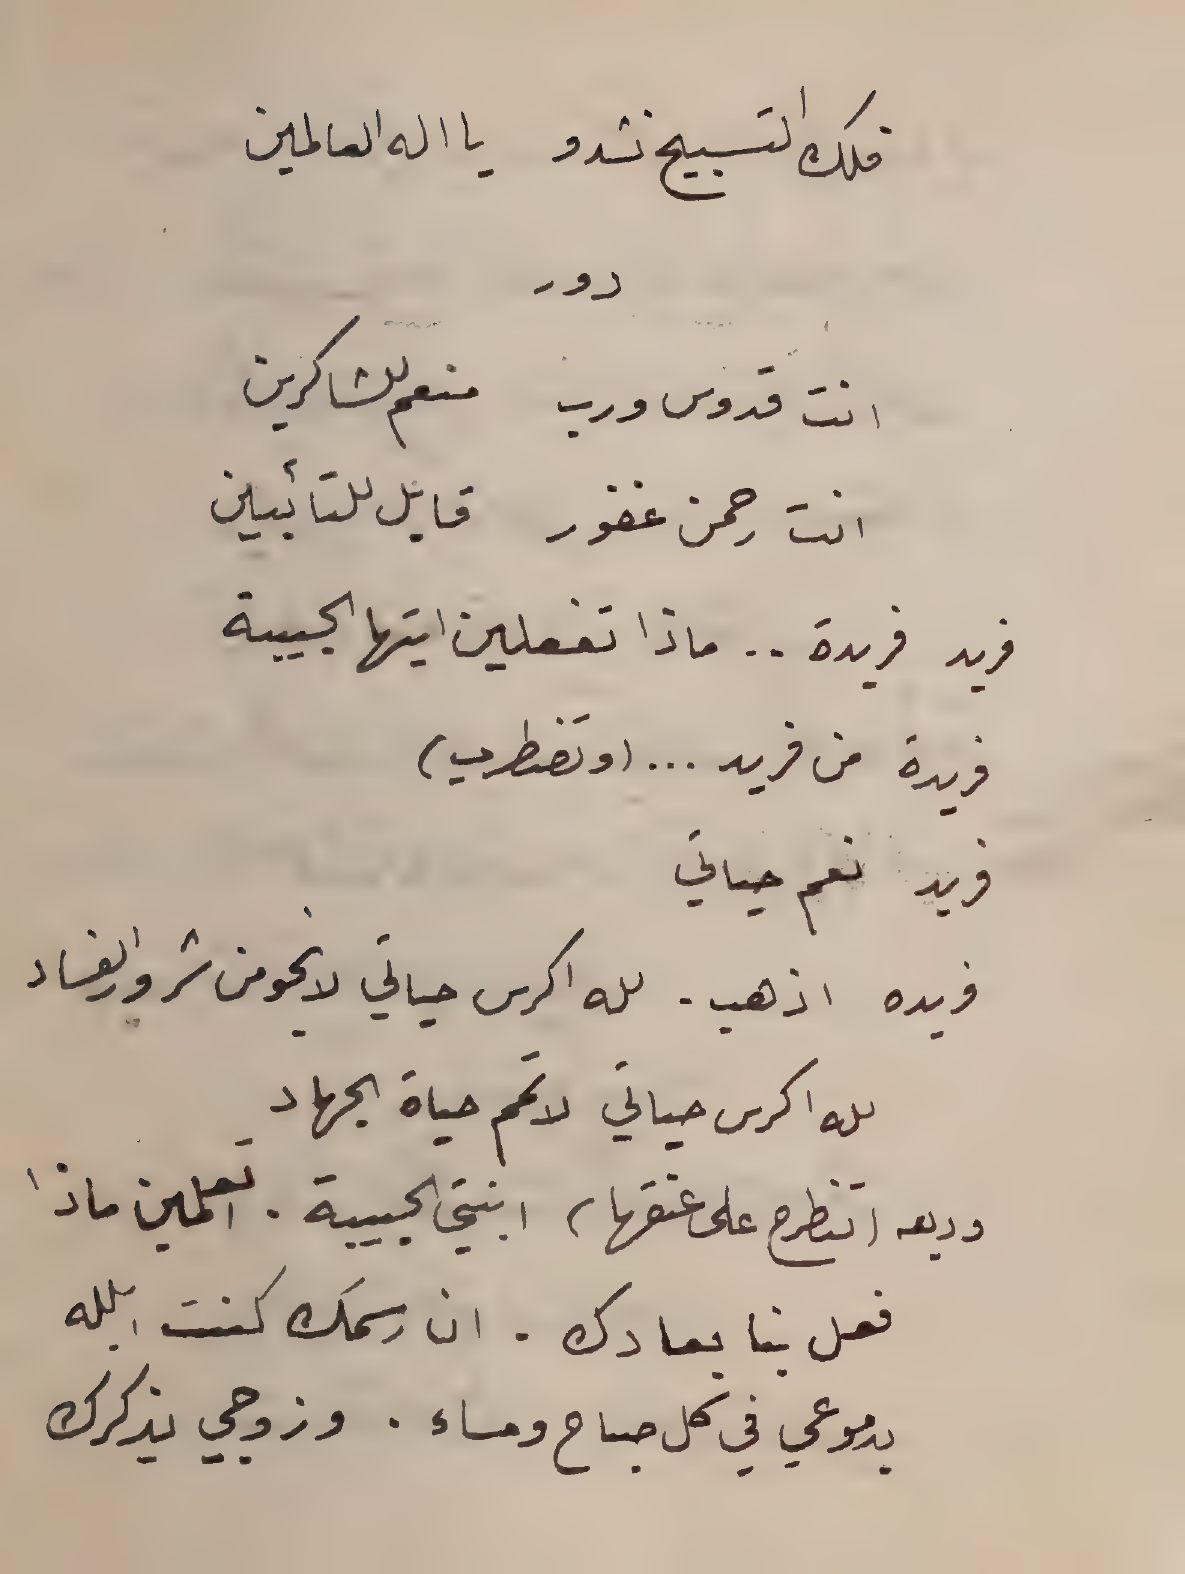 فلك التسبيح نشدو يا اله العالمين
دور
انت قدوس ورب منعم للشاكرين
انت رحمن غفور قابل للتائبين
فريد فريدة .. ماذا تفعلين ايتها الحبيبة
فريدة من فريد ... (وتضطرب)
فريد نعم حياتي
فريده اذهب . لله اكرس حياتي لانجو من شرور الفساد
لله اكرس حياتي لاتمم حياة الجهاد
وديعه (تنطرح على عنقها) ابنتي الحبيبة . اتعلمين ماذا
فعل بنا بعادك . ان رسمك كنت ابلله
بدموعي في كل صباح ومساء . وزوجي يذكرك